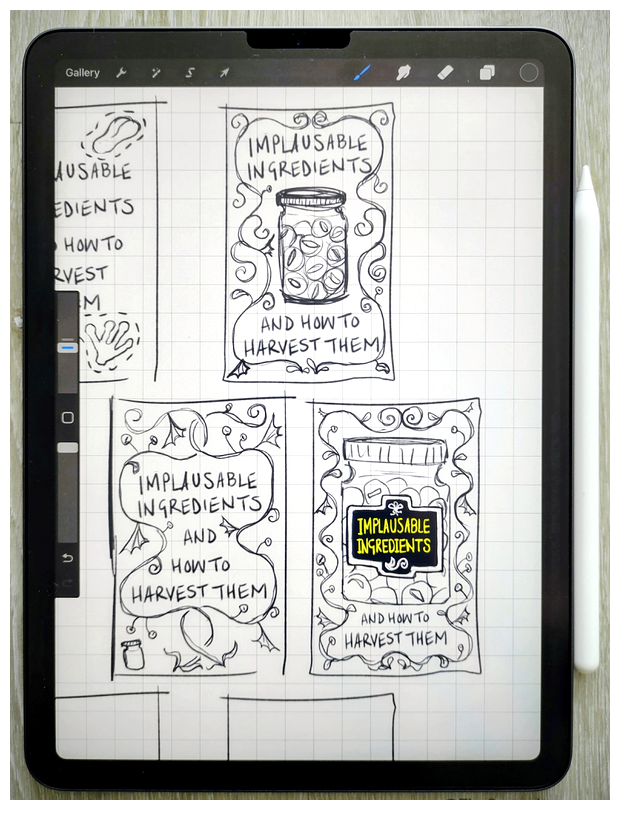 Gallery
AUSABLE
EDIENTS
HOW TO
RVEST
M
IMPLAUSABLE
INGREDIENTS
AND HOW TO
HARVEST THEM
IMPLAUSABLE
INGREDIENTS
AND
HOW TO
HARVEST THEM
IMPLAUSABLE
INGREDIENTS
AND HOW TO
HARVEST THEM